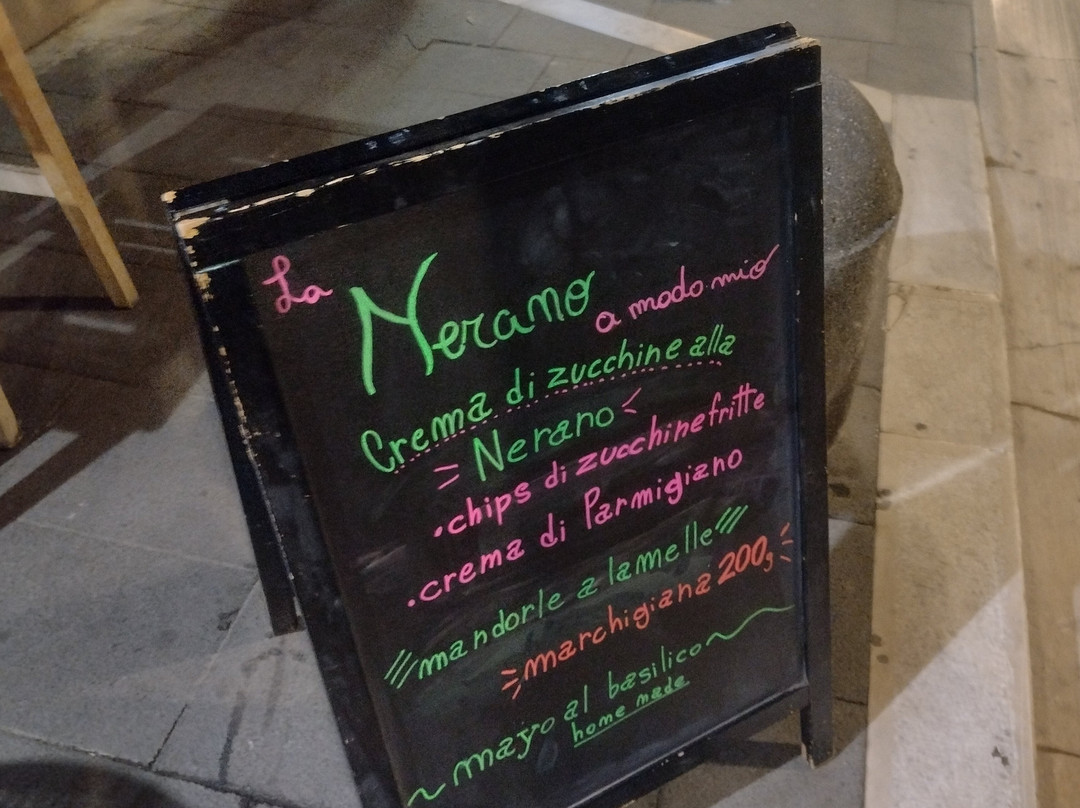 La Nerano a modo mio
Crema di zucchine alla
Nerano
• chips di zucchine fritte
• crema di Parmigiano
mandorle a lamelle
marchigiana 200g
~ mayo al basilico ~
home made